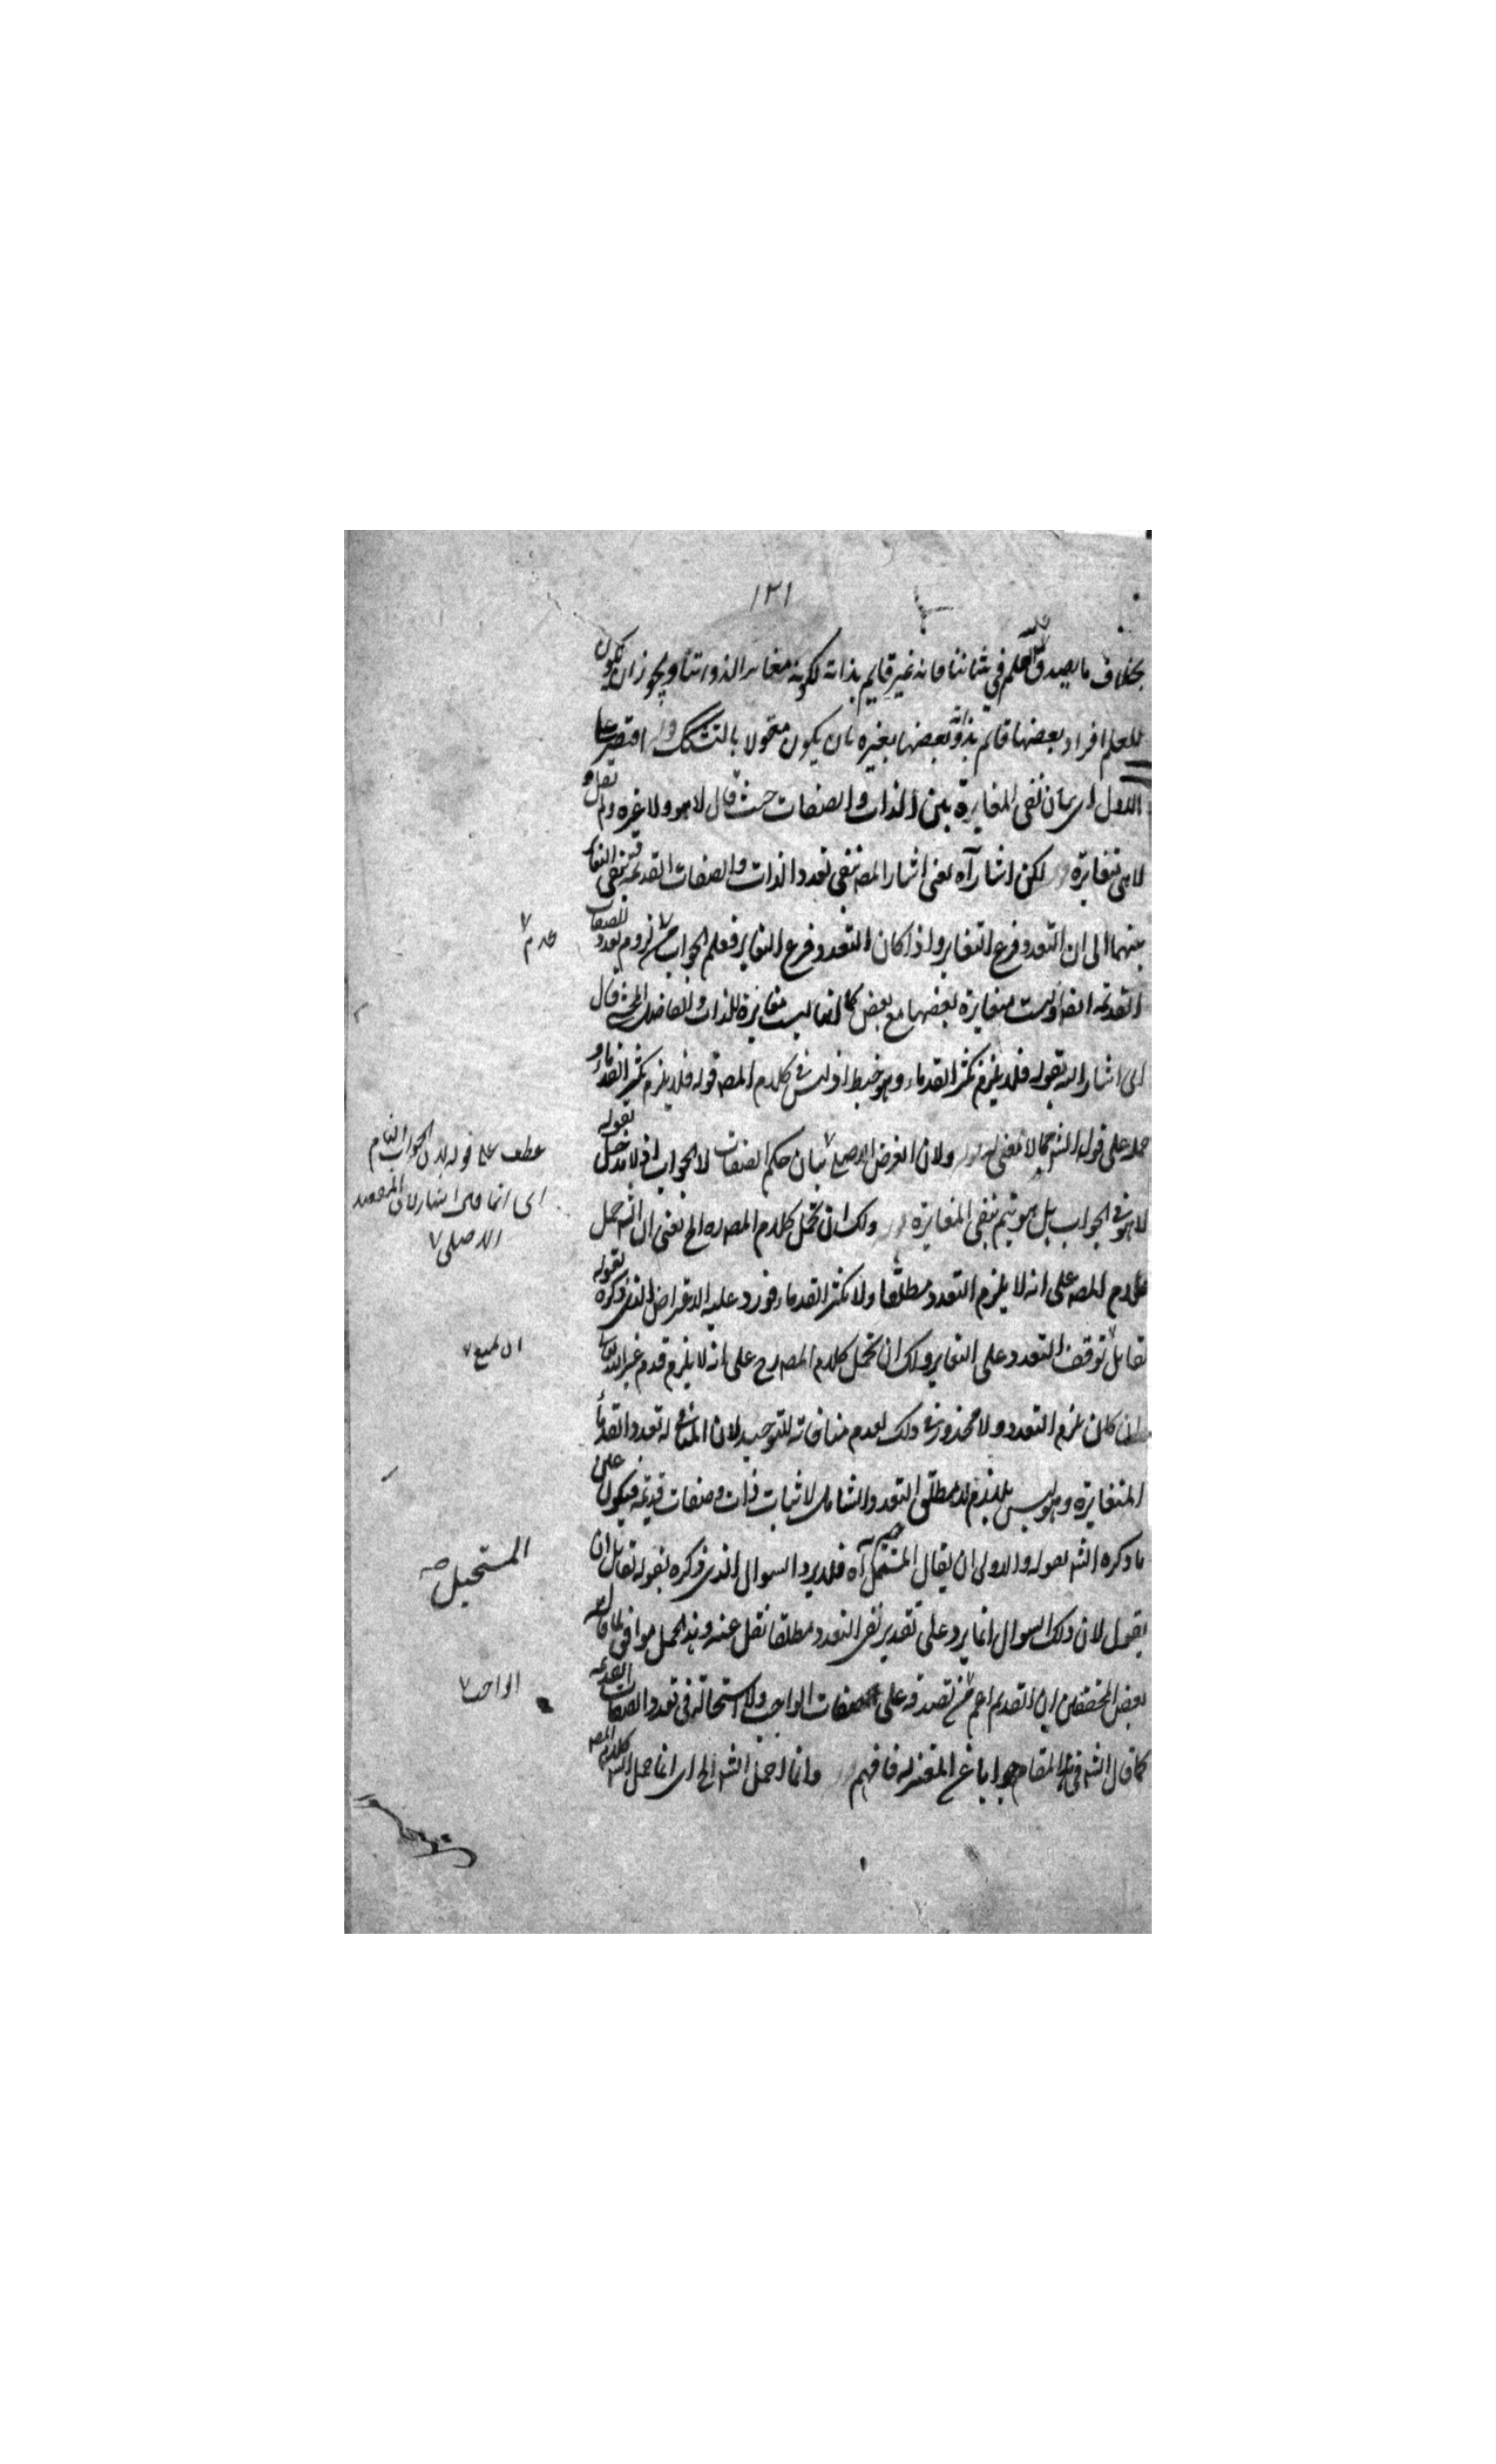 ١٢١
بخلاف ما يصدق عليه العلم في شاننا فانه غير قايم بذاته لكونه مغايرا لذواتنا ويجوز ان يكون
للعلم افراد بعضها قائم بذاته وبعضها بغيره بان يكون مقولا بالتشكيك اقتصر على
الاول اى بيان نفى المغايرة بين الذات والصفات حيث قال لا هو ولا غيره ولم يقل و
لا هى متغايرة لكن اشار آه يعنى اشار المصـ بنفى تعدد الذات والصفات القديمة بنفى التغاير
بينهما الى ان التعدد فرع التغاير واذا كان التعدد فرع التغاير فعلم الجواب عن لزوم تعدد الصفات
القديمة ايضا وليست متغايرة بعضها مع بعض كما انها ليست مغايرة للذات والفاضل المحشى قال
اى اشار اليه بقوله فلا يلزم تكثر القدماء وهو خبط اذ ليس فى كلام المصـ قوله فلا يلزم تكثر القدماء و
حمله على قول الشـ مما لا معنى له ولان الغرض الاصلى بيان حكم الصفات لا الجواب اذ لا مدخل لقوله
لا هو فى الجواب بل هو يتم بنفى المغايرة ولك ان تحمل كلام المصـ ره الخ يعنى ان الشـ حمل
كلام المصـ على انه لا يلزم التعدد مطلقا ولا تكثر القدماء فورد عليه الاعتراض الذى ذكره بقوله
لقائل توقف التعدد على التغاير ولك ان تحمل كلام المصـ رح على انه لا يلزم قدم غير الله تعالى
وان كان يلزم التعدد ولا محذور فى ذلك لعدم منافاته للتوحيد لان المنافى له تعدد القدماء
المتغايرة وهو ليس بلازم لا مطلق التعدد الشامل لاثبات ذات وصفات قديمة فيكون على
ما ذكره الشـ بقوله والاولى ان يقال المستحيل آه فلا يرد السوال الذى ذكره بقوله لقائل ان
يقول لان ذلك السوال انما يرد على تقدير نفى التعدد مطلقا نقل عنه وهذا الحمل موافق لما قاله
بعض المحققين ان القديم اعم من لصدقه على صفات الواجب ولا استحالة فى تعدد الصفات القديمة
كما قال الشـ فى هذا المقام جوابا عن المعتزله فافهم وانما احمل الشـ الخ اى انما حمل الشـ كلام المصـ
عدم
عطف على قوله لان الجواب التام
اى انما قال اشار لان المقصود
الاصلى
ان يمنع
المستحيل صـ
الواجب